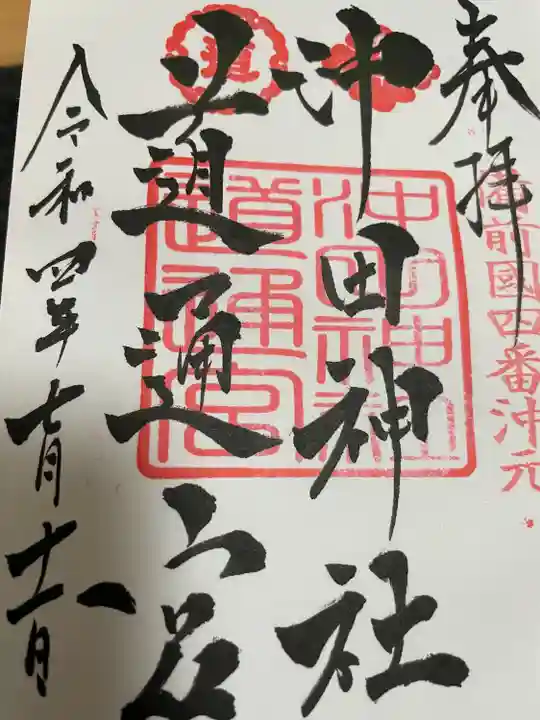 奉拝
備前國四番沖元
沖田神社
道通宮
沖田神社
道通宮
令和四年七月十一日